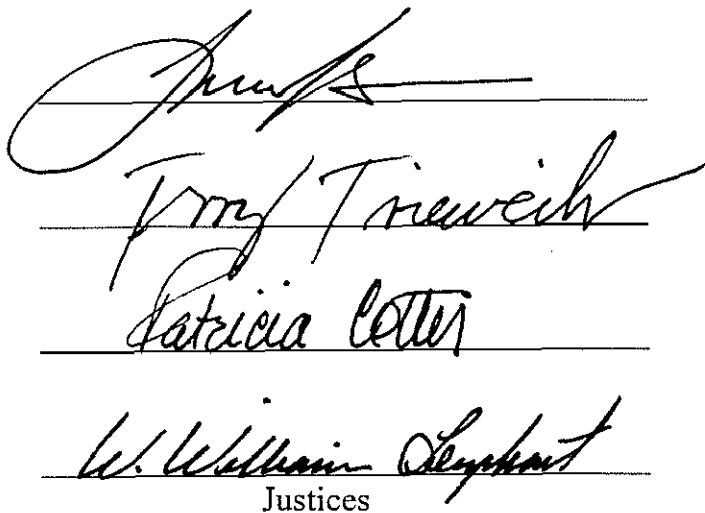 Terry Trieweiler
Patricia Cotter
W. William Leaphart
Justices